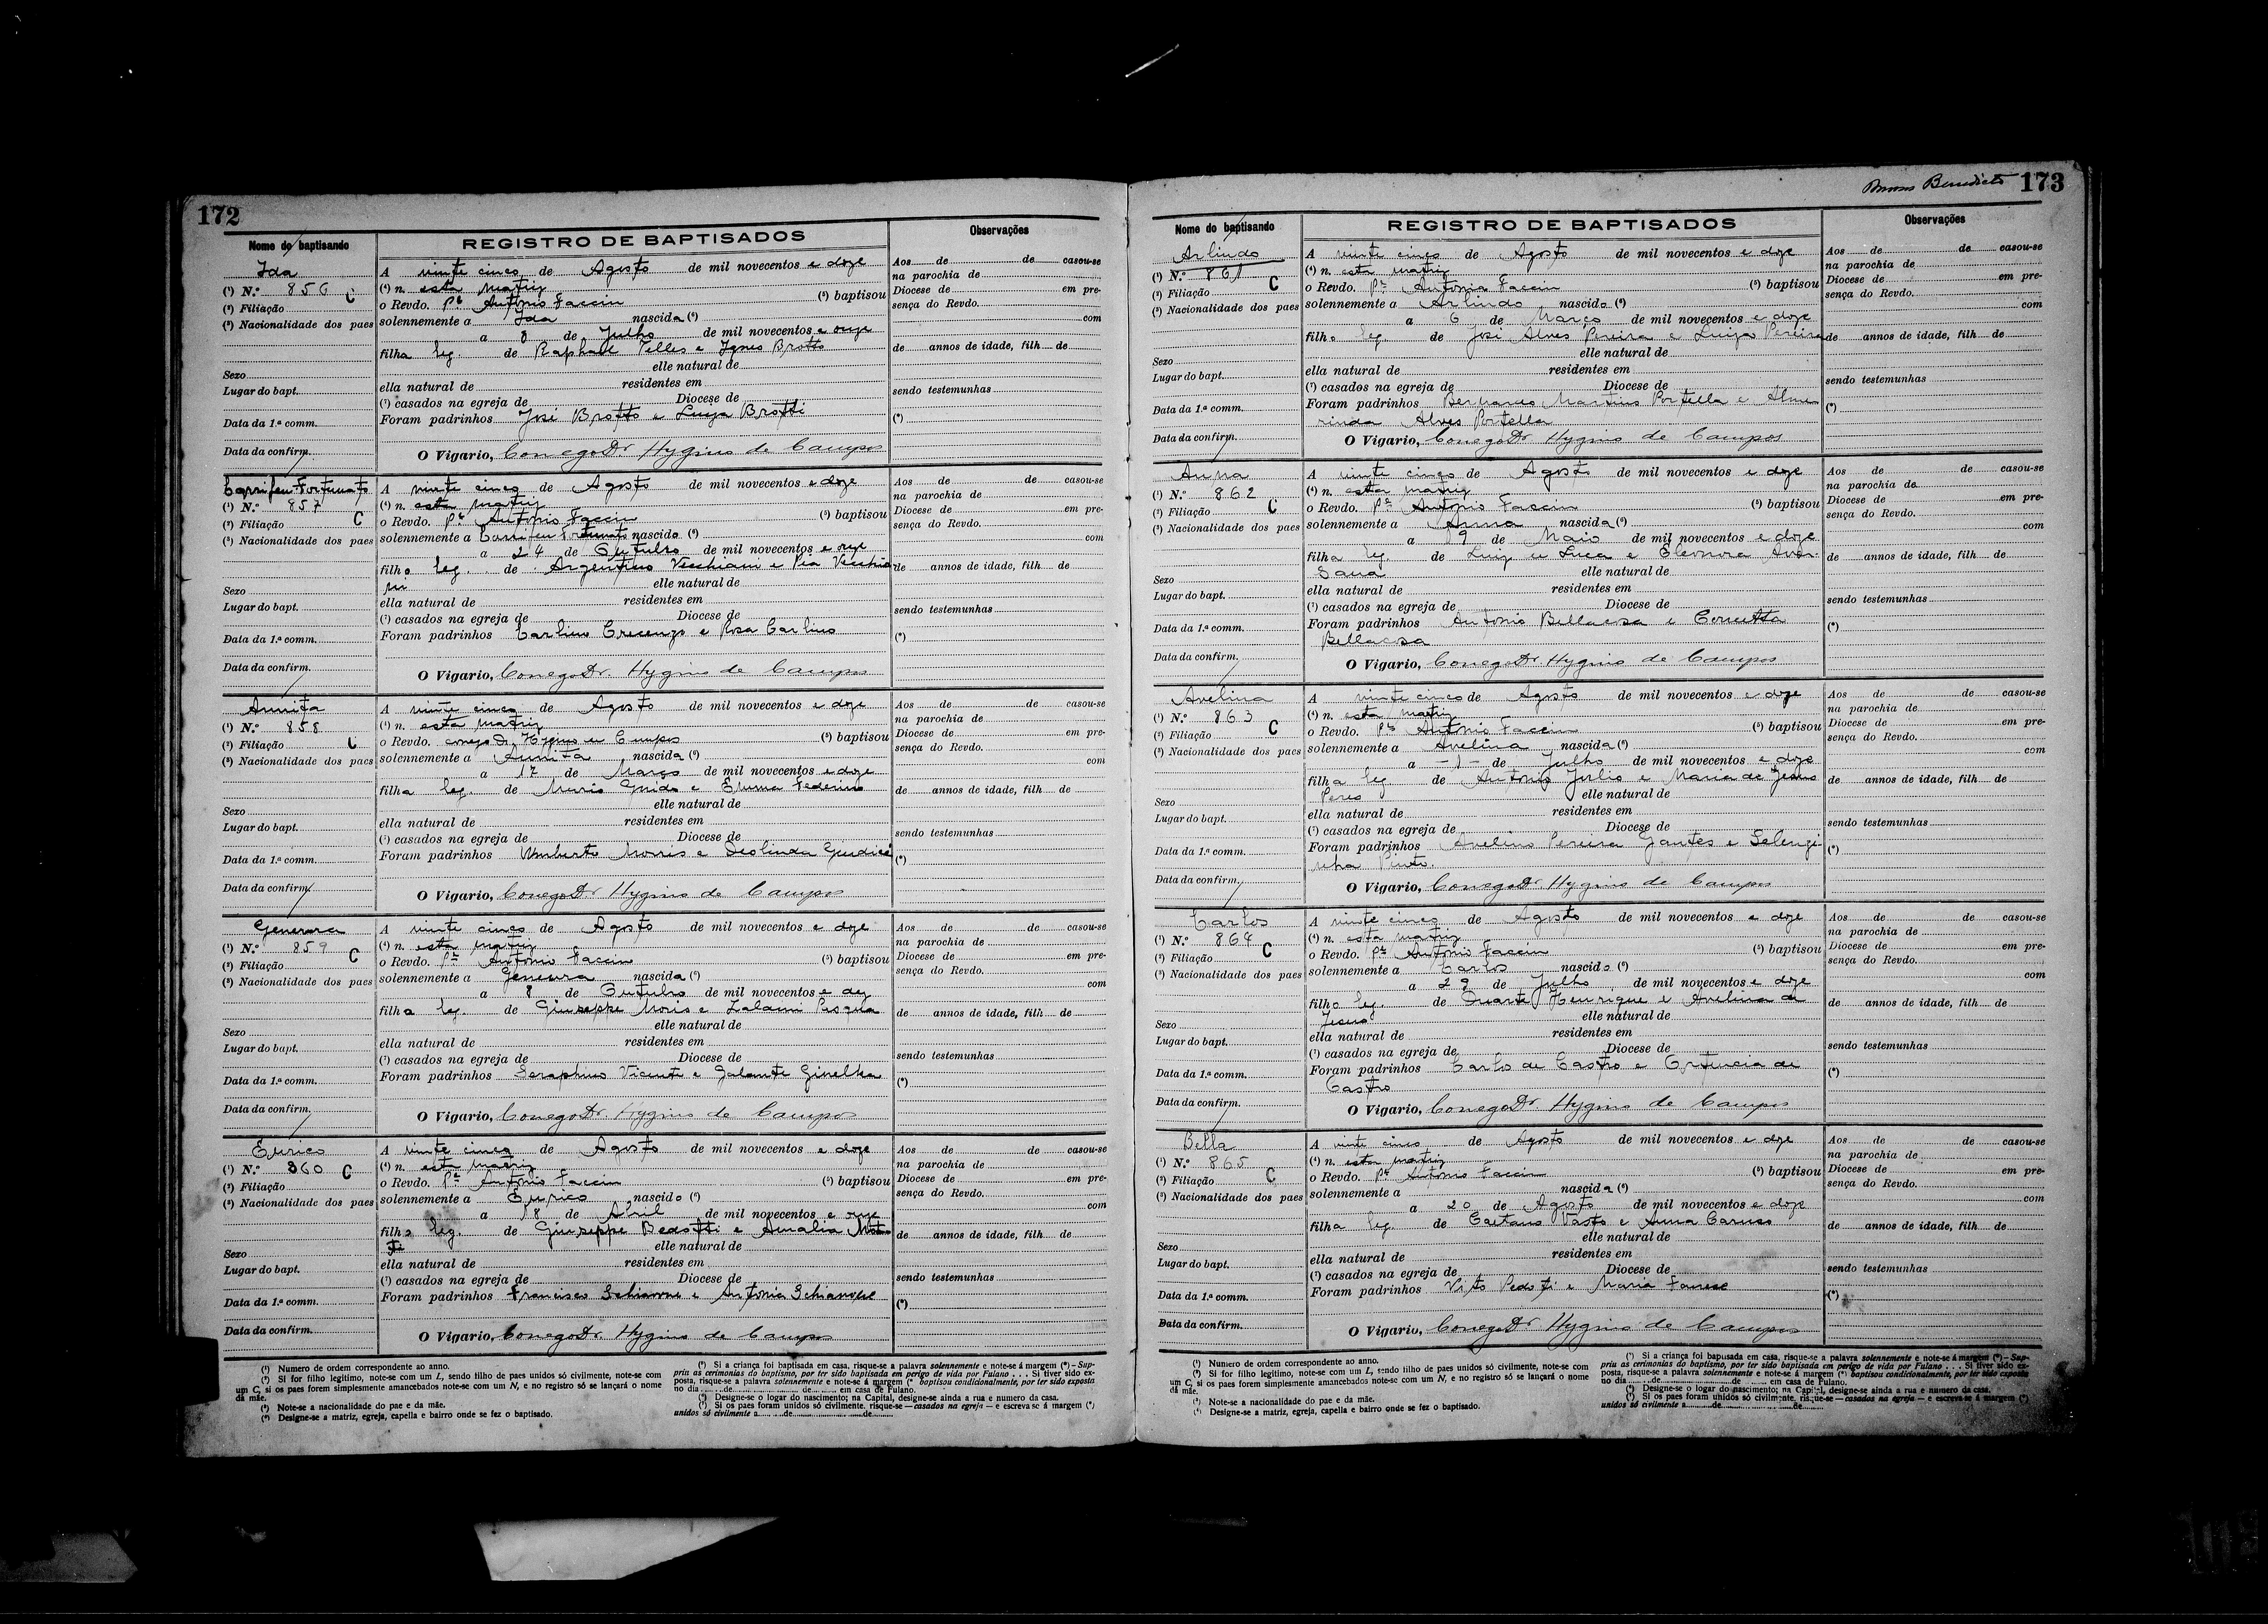 172
Nome do baptisando
REGISTRO DE BAPTISADOS
Observações
Ida
(¹) N.º 856 C
(²) Filiação
(³) Nacionalidade dos paes
Sexo
Lugar do bapt.
Data da 1.ª comm.
Data da confirm.
A vinte cinco de Agosto de mil novecentos e doze
(⁴) n. esta matriz
o Revdo. Pe Antonio Faccin (⁵) baptisou
solennemente a Ida nascida (⁶)
a 8 de Julho de mil novecentos e onze
filha leg. de Raphael Telles e Ignes Brotto
elle natural de
ella natural de residentes em
(⁷) casados na egreja de Diocese de
Foram padrinhos José Brotto e Luiza Brotti
O Vigario, Conego Dr. Hygino de Campos
Aos de de casou-se
na parochia de
Diocese de em pre-
sença do Revdo.
com
de annos de idade, filh de
sendo testemunhas
(*)
Fortunato
(¹) N.º 857 C
(²) Filiação
(³) Nacionalidade dos paes
Sexo
Lugar do bapt.
Data da 1.ª comm.
Data da confirm.
A vinte cinco de Agosto de mil novecentos e doze
(⁴) n. esta matriz
o Revdo. Pe Antonio Faccin (⁵) baptisou
solennemente a Fortunato nascido (⁶)
a 24 de Outubro de mil novecentos e onze
filho leg. de Argentino Vecchiani e Pia Vecchia
ni elle natural de
ella natural de residentes em
(⁷) casados na egreja de Diocese de
Foram padrinhos Carlino Crecenzo e Rosa Carlino
O Vigario, Conego Dr. Hygino de Campos
Aos de de casou-se
na parochia de
Diocese de em pre-
sença do Revdo.
com
de annos de idade, filh de
sendo testemunhas
(*)
Annita
(¹) N.º 858 C
(²) Filiação
(³) Nacionalidade dos paes
Sexo
Lugar do bapt.
Data da 1.ª comm.
Data da confirm.
A vinte cinco de Agosto de mil novecentos e doze
(⁴) n. esta matriz
o Revdo. conego Dr. Hygino de Campos (⁵) baptisou
solennemente a Annita nascida (⁶)
a 17 de Março de mil novecentos e doze
filha leg. de Mario Guido e Emma Federino
elle natural de
ella natural de residentes em
(⁷) casados na egreja de Diocese de
Foram padrinhos Umberto Morris e Deolinda
O Vigario, Conego Dr. Hygino de Campos
Aos de de casou-se
na parochia de
Diocese de em pre-
sença do Revdo.
com
de annos de idade, filh de
sendo testemunhas
(*)
Genevra
(¹) N.º 859 C
(²) Filiação
(³) Nacionalidade dos paes
Sexo
Lugar do bapt.
Data da 1.ª comm.
Data da confirm.
A vinte cinco de Agosto de mil novecentos e doze
(⁴) n. esta matriz
o Revdo. Pe Antonio Faccin (⁵) baptisou
solennemente a Genevra nascida (⁶)
a 8 de Outubro de mil novecentos e dez
filha leg. de Giuseppe Moris e
elle natural de
ella natural de residentes em
(⁷) casados na egreja de Diocese de
Foram padrinhos Seraphino Vicente e Galante
O Vigario, Conego Dr. Hygino de Campos
Aos de de casou-se
na parochia de
Diocese de em pre-
sença do Revdo.
com
de annos de idade, filh de
sendo testemunhas
(*)
Eurico
(¹) N.º 860 C
(²) Filiação
(³) Nacionalidade dos paes
Sexo
Lugar do bapt.
Data da 1.ª comm.
Data da confirm.
A vinte cinco de Agosto de mil novecentos e doze
(⁴) n. esta matriz
o Revdo. Pe Antonio Faccin (⁵) baptisou
solennemente a Eurico nascido (⁶)
a 18 de Abril de mil novecentos e onze
filho leg. de Giuseppe Bedotti e Amalia
elle natural de
ella natural de residentes em
(⁷) casados na egreja de Diocese de
Foram padrinhos Francisco Schiavone e Antonia Schiavone
O Vigario, Conego Dr. Hygino de Campos
Aos de de casou-se
na parochia de
Diocese de em pre-
sença do Revdo.
com
de annos de idade, filh de
sendo testemunhas
(*)
(¹) Numero de ordem correspondente ao anno.
(²) Si for filho legitimo, note-se com um L, sendo filho de paes unidos só civilmente, note-se com
um C, si os paes forem simplesmente amancebados note-se com um N, e no registro só se lançará o nome
da mãe.
(³) Note-se a nacionalidade do pae e da mãe.
(⁴) Designe-se a matriz, egreja, capella e bairro onde se fez o baptisado.
(⁵) Si a criança foi baptisada em casa, risque-se a palavra solennemente e note-se á margem (*) – Sup-
priu as cerimonias do baptismo, por ter sido baptisada em perigo de vida por Fulano . . . Si tiver sido ex-
posta, risque-se a palavra solennemente e note-se á margem (* baptisou condicionalmente, por ter sido exposta
no dia de de em casa de Fulano.
(⁶) Designe-se o logar do nascimento; na Capital, designe-se ainda a rua e numero da casa.
(⁷) Si os paes foram unidos só civilmente, risque-se — casados na egreja — e escreva se á margem (*)
unidos só civilmente a de de
Benedicto 173
Nome do baptisando
REGISTRO DE BAPTISADOS
Observações
Arlindo
(¹) N.º 861 C
(²) Filiação
(³) Nacionalidade dos paes
Sexo
Lugar do bapt.
Data da 1.ª comm.
Data da confirm.
A vinte cinco de Agosto de mil novecentos e doze
(⁴) n. esta matriz
o Revdo. Pe Antonio Faccin (⁵) baptisou
solennemente a Arlindo nascido (⁶)
a 6 de Março de mil novecentos e doze
filho leg. de José Alves Pereira e Luiza Pereira
elle natural de
ella natural de residentes em
(⁷) casados na egreja de Diocese de
Foram padrinhos Bernardo Martins Portella e Alme
rinda Alves Portella
O Vigario, Conego Dr Hygino de Campos
Aos de de casou-se
na parochia de
Diocese de em pre-
sença do Revdo.
com
de annos de idade, filh de
sendo testemunhas
(*)
Anna
(¹) N.º 862 C
(²) Filiação
(³) Nacionalidade dos paes
Sexo
Lugar do bapt.
Data da 1.ª comm.
Data da confirm.
A vinte cinco de Agosto de mil novecentos e doze
(⁴) n. esta matriz
o Revdo. Pe Antonio Faccin (⁵) baptisou
solennemente a Anna nascida (⁶)
a 19 de Maio de mil novecentos e doze
filha leg. de Luiz de Luca e Eleonora
elle natural de
ella natural de residentes em
(⁷) casados na egreja de Diocese de
Foram padrinhos Antonio Bellacosa e Concetta
Bellacosa
O Vigario, Conego Dr. Hygino de Campos
Aos de de casou-se
na parochia de
Diocese de em pre-
sença do Revdo.
com
de annos de idade, filh de
sendo testemunhas
(*)
Avelina
(¹) N.º 863 C
(²) Filiação
(³) Nacionalidade dos paes
Sexo
Lugar do bapt.
Data da 1.ª comm.
Data da confirm.
A vinte cinco de Agosto de mil novecentos e doze
(⁴) n. esta matriz
o Revdo. Pe Antonio Faccin (⁵) baptisou
solennemente a Avelina nascida (⁶)
a – 1 – de Julho de mil novecentos e doze
filha leg. de Antonio Julio e Maria de Jesus
Peres elle natural de
ella natural de residentes em
(⁷) casados na egreja de Diocese de
Foram padrinhos Avelino Pereira e
Pinto.
O Vigario, Conego Dr. Hygino de Campos
Aos de de casou-se
na parochia de
Diocese de em pre-
sença do Revdo.
com
de annos de idade, filh de
sendo testemunhas
(*)
Carlos
(¹) N.º 864 C
(²) Filiação
(³) Nacionalidade dos paes
Sexo
Lugar do bapt.
Data da 1.ª comm.
Data da confirm.
A vinte cinco de Agosto de mil novecentos e doze
(⁴) n. esta matriz
o Revdo. Pe Antonio Faccin (⁵) baptisou
solennemente a Carlos nascido (⁶)
a 29 de Julho de mil novecentos e doze
filho leg. de Duarte Henrique e Avelina de
Jesus elle natural de
ella natural de residentes em
(⁷) casados na egreja de Diocese de
Foram padrinhos Carlos de Castro e Ortencia de
Castro
O Vigario, Conego Dr. Hygino de Campos
Aos de de casou-se
na parochia de
Diocese de em pre-
sença do Revdo.
com
de annos de idade, filh de
sendo testemunhas
(*)
Bella
(¹) N.º 865 C
(²) Filiação
(³) Nacionalidade dos paes
Sexo
Lugar do bapt.
Data da 1.ª comm.
Data da confirm.
A vinte cinco de Agosto de mil novecentos e doze
(⁴) n. esta matriz
o Revdo. Pe Antonio Faccin (⁵) baptisou
solennemente a nascida (⁶)
a 20 de Agosto de mil novecentos e doze
filha leg. de Caetano Vasto e Anna Caruso
elle natural de
ella natural de residentes em
(⁷) casados na egreja de Diocese de
Foram padrinhos Vito Pedoti e Maria Farnese
O Vigario, Conego Dr Hygino de Campos
Aos de de casou-se
na parochia de
Diocese de em pre-
sença do Revdo.
com
de annos de idade, filh de
sendo testemunhas
(*)
(¹) Numero de ordem correspondente ao anno.
(²) Si for filho legitimo, note-se com um L, sendo filho de paes unidos só civilmente, note-se com
um C, si os paes forem simplesmente amancebados note-se com um N, e no registro só se lançará o nome
da mãe.
(³) Note-se a nacionalidade do pae e da mãe.
(⁴) Designe-se a matriz, egreja, capella e bairro onde se fez o baptisado.
(⁵) Si a criança foi baptisada em casa, risque-se a palavra solennemente e note-se á margem (*) – Sup-
priu as cerimonias do baptismo, por ter sido baptisada em perigo de vida por Fulano . . . Si tiver sido ex-
posta, risque-se a palavra solennemente e note-se á margem (*) baptisou condicionalmente, por ter sido exposta
no dia de de em casa de Fulano.
(⁶) Designe-se o logar do nascimento; na Capital, designe-se ainda a rua e numero da casa.
(⁷) Si os paes foram unidos só civilmente, risque-se — casados na egreja — e escreva-se á margem (*)
unidos só civilmente a de de